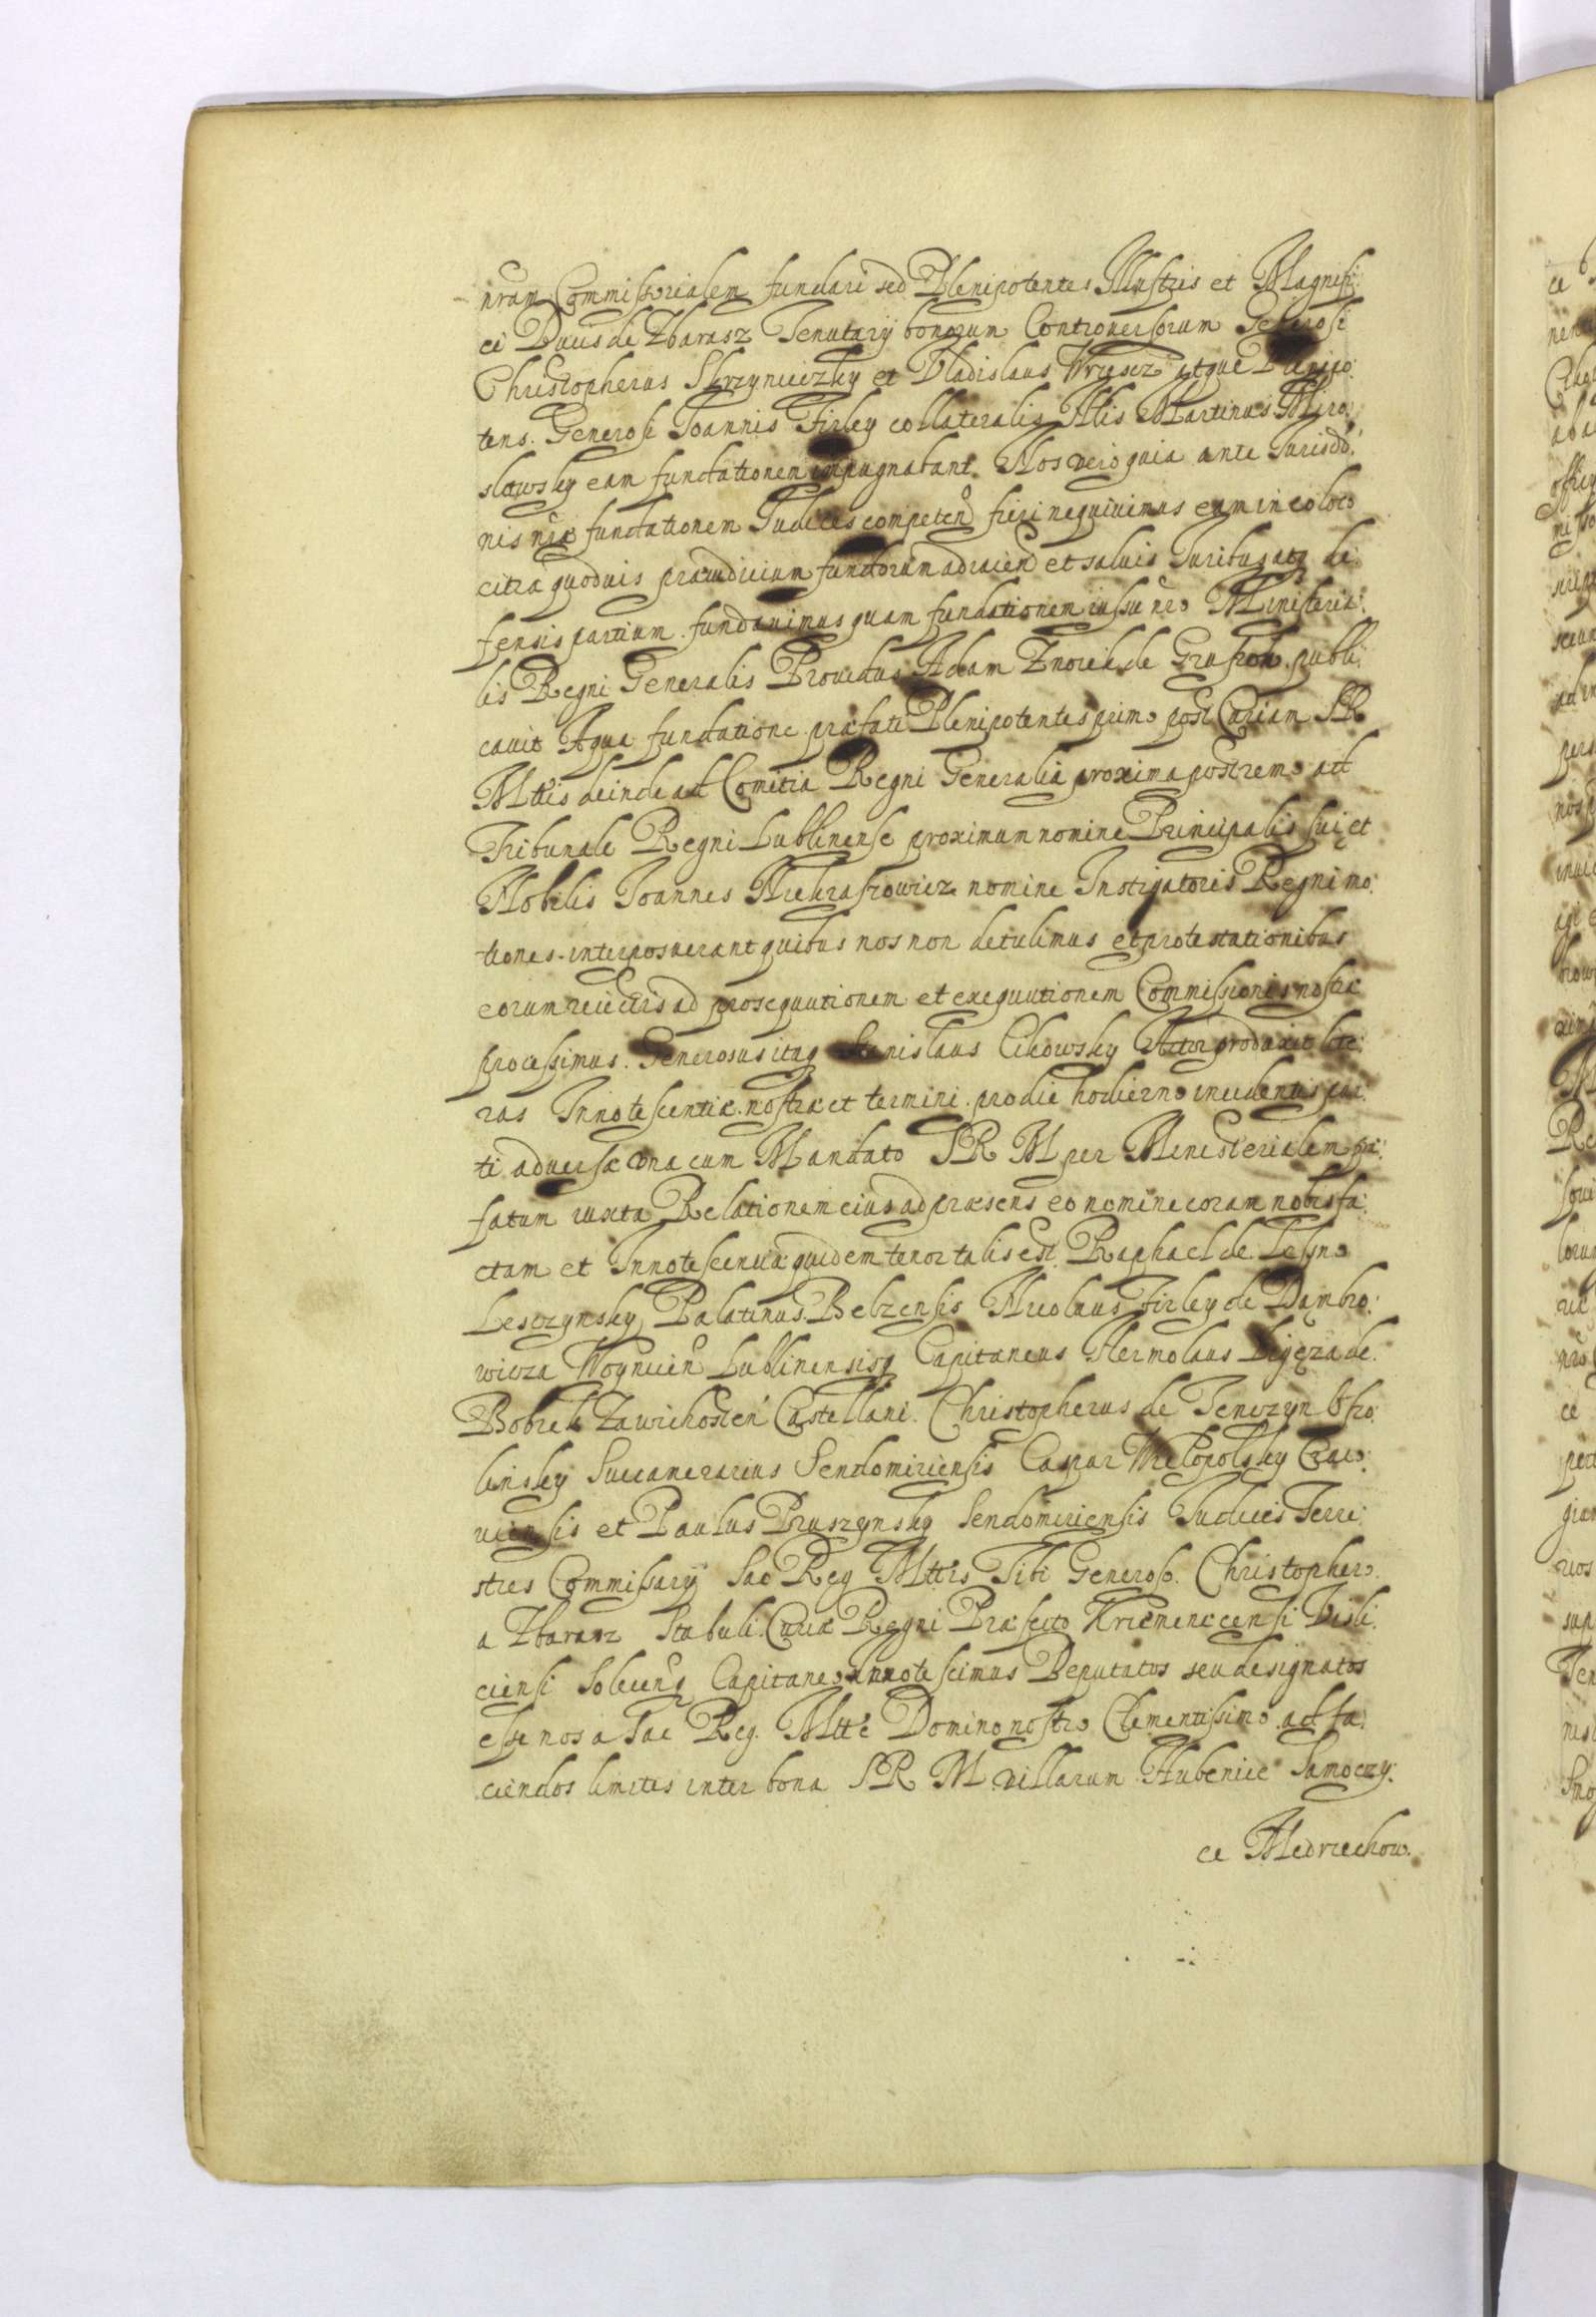 nram Commissorialem fundari sed Plenipotentes Illustris et Magnifi:
ci Ducis de Zbarasz Tenutarÿ bonorum Controuersorum Generosi
Christopherus Skrzynieczky et Vladislaus Wrzescz itque Plenipo:
tens. Generosi Joannis Firley collateralis Nlis Martinus Miro:
slawsky eam fundationem impugnabant. Nos vero quia ante Jurisdd:
nis nrae fundationem Judices competen fieri nequiuimus eum in eo loco
citra quoduis praeiudicium fundorum adiacen et saluis Juribus atq de:
fensis partium. fundauimus quam fundationem iussu nro Ministeria:
lis Regni Generalis Prouidus Adam Znorek de publi:
cauit A qua fundatione praefati Plenipotentes primo post Curiam SR
Mttis deinde ad Comitia Regni Generalia proxima postremo ad
Tribunale Regni Lublinense proximum nomine Principalis sui et
Nobilis Joannes nomine Instigatoris Regni mo:
tiones. interposuerant quibus nos non detulimus et protestationibus
eorum reiectis ad prosequutionem et exequutionem Commissionis nostrae
processimus. Generosus itaq Stanislaus Cikowsky Actor produxit lite:
ras Innotescentiae. nostrae et termini. pro die hodierno incidentis par:
ti aduersae vna cum Mandato SR M per Ministerialem prae:
fatum iuxta Relationem eius ad praesens eo nomine coram nobis fa:
ctam et Innotescentiae quidem tenor talis est. Raphael de Leszno
Lesczynsky Palatinus. Belzensis Nicolaus Firley de Dambro:
wicza Woynicen Lublinensisq Capitaneus Hermolaus Ligęza de.
Bobrek Zawichosten Castellani. Christopherus de Tenczyn Osso:
linsky Succamerarius Sendomiriensis Caspar Wielopolsky Craco:
uiensis et Paulus Pruszynsky Sendomiriensis Judices Terre:
stres Commissarÿ Sac Reg Mttis Tibi Generoso. Christophero.
a Zbarasz Stabuli. Curiae Regni Praefecto Krzemenecensi Visli:
ciensi Solecenq Capitaneo Innotescimus Deputatos seu designatos
esse nos a Sac Reg. Mtte Domino nostro Clementissimo ad fa:
ciendos limites inter bona SR M villarum Hubenice Samoczy:
ce Medrzechow.